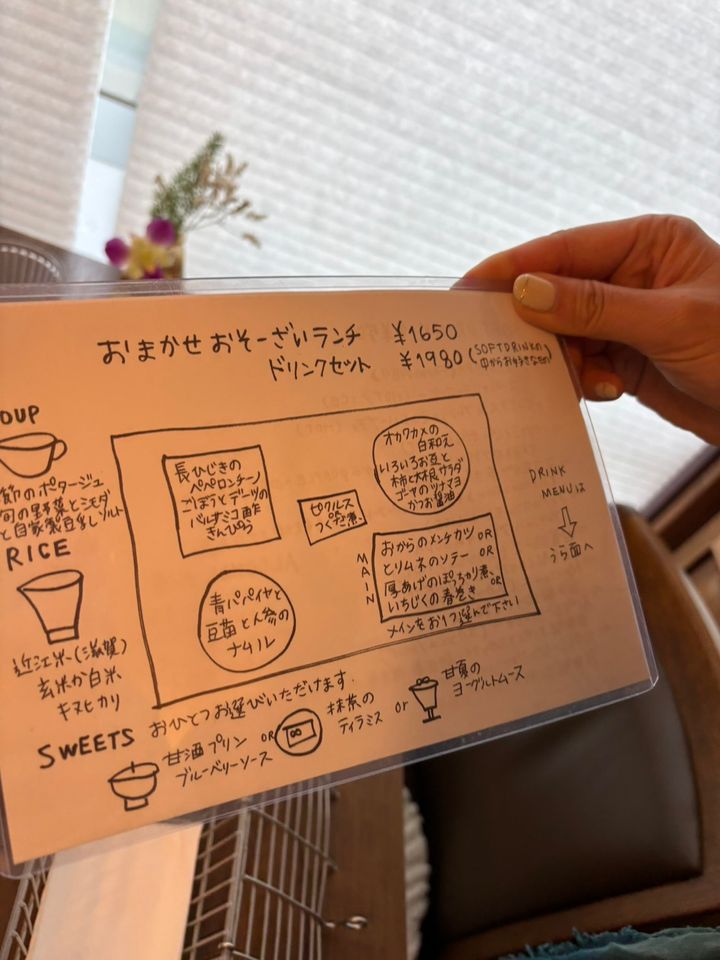 おまかせ おそーざいランチ ¥1650
ドリンクセット ¥1980 (SOFTDRINKの
中からお好きなもの)
OUP
節のポタージュ
旬の野菜と
と自家製豆乳
RICE
近江米(滋賀)
玄米か白米
キヌヒカリ
長ひじきの
ペペロンチーノ
ごぼうとデーツの
バルサミコ酢
きんぴら
ピクルス
つくだ煮
オカワカメの
白和え
いろいろお豆と
柿と大根サラダ
ゴーヤのツナマヨ
かつお醤油
青パパイヤと
豆苗と人参の
ナムル
MAIN
おからのメンチカツ OR
とりムネのソテー OR
厚あげのぽっかり煮 OR
いちじくの春巻き
メインをお1つ選んで下さい
DRINK
MENUは
うら面へ
SWEETS おひとつお選びいただけます.
甘酒プリン
ブルーベリーソース
OR
抹茶の
ティラミス
or
甘夏の
ヨーグルトムース